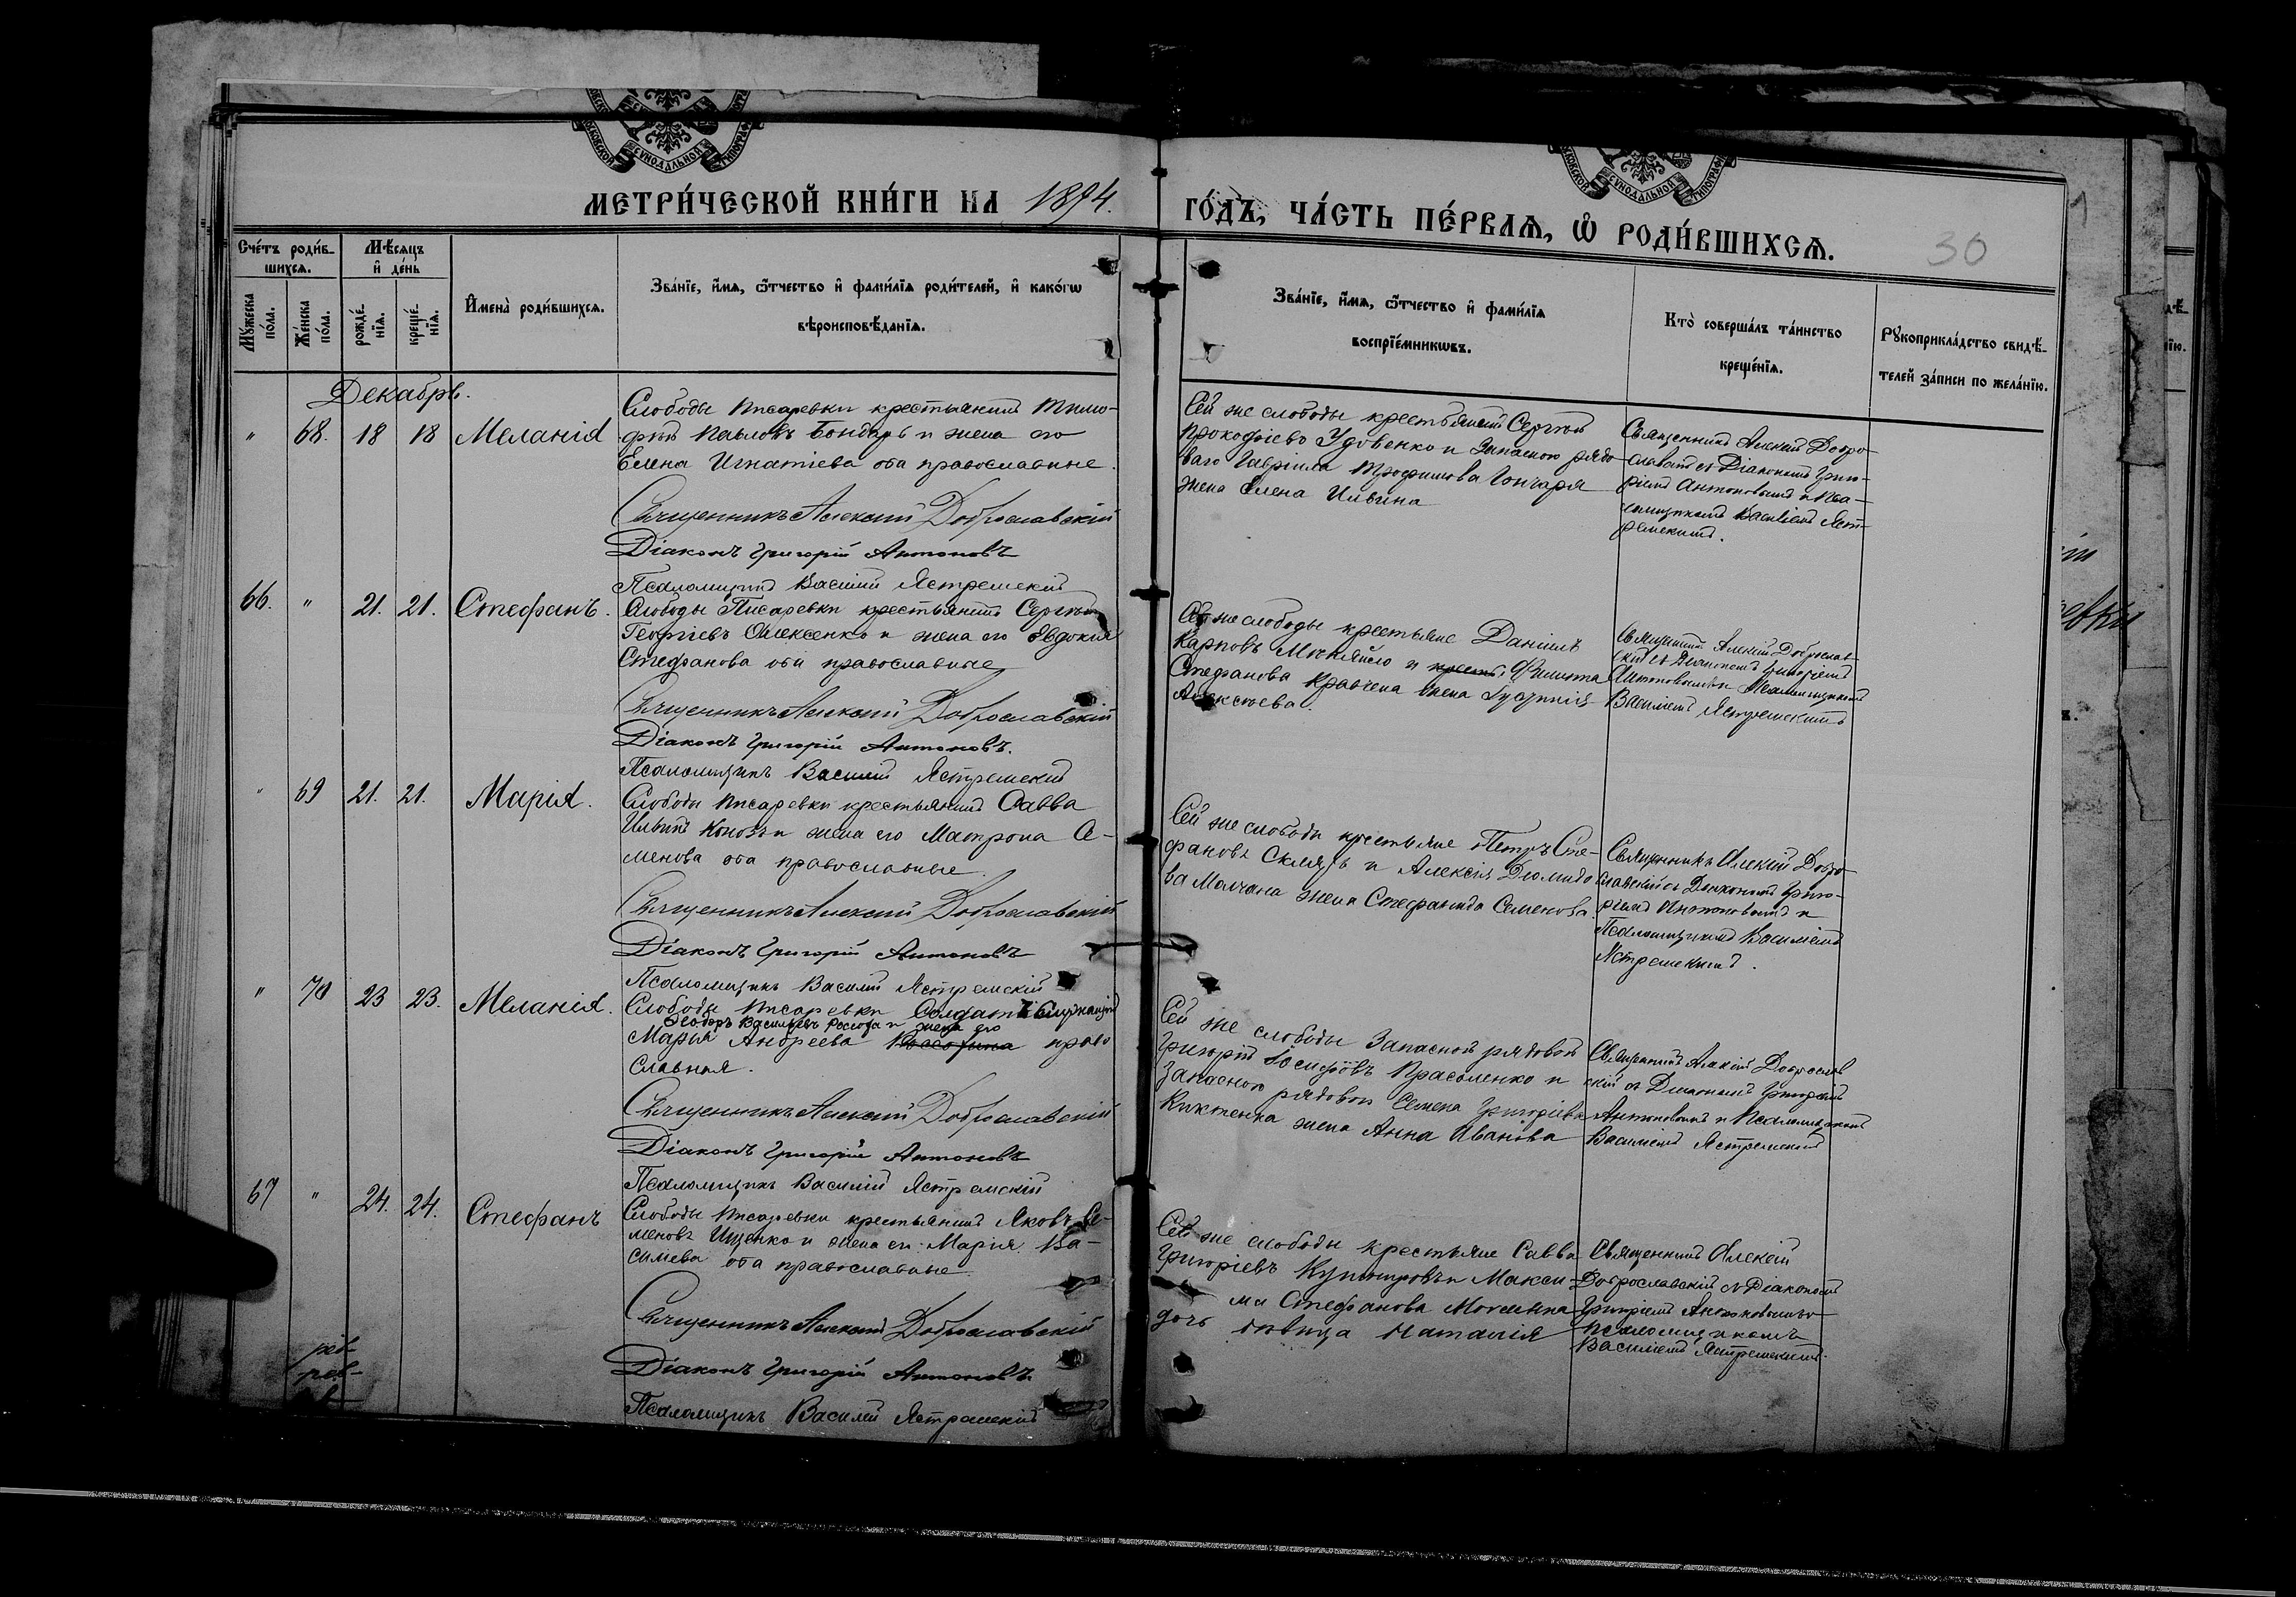 МЕТРИ́ЧЕСКОЙ КНИ́ГИ НА 1894.
ГО́ДЪ, ЧА́СТЬ ПЕ́РВАѦ, Ѽ РОДИ́ВШИХСѦ.
30
Сче́тъ роди́в-
шихсѧ.
Мѣ́сѧцъ
и҆ де́нь
Мꙋ́жеска
по́ла.
Же́нска
по́ла.
рожде́-
нїѧ.
креще́-
нїѧ.
И҆мена̀ роди́вшихсѧ.
Зва́нїе, и҆́мѧ, ѻ҆́тчество и҆ фами́лїѧ роди́телей, и҆ како́гѡ
вѣроисповѣ́данїѧ.
Зва́нїе, и҆́мѧ, ѻ҆́тчество и҆ фами́лїѧ
воспрїе́мникѡвъ.
Кто̀ соверша́лъ та́инство
креще́нїѧ.
Рꙋкоприкла́дство свидѣ́-
телей за́писи по жела́нїю.
Декабрь.
" 68. 18 18 Меланія
Слободы Писаревки крестьянинъ Тимо-
фей Павловъ Бондарь и жена его
Елена Игнатіева оба православные.
Священникъ Алексій Доброславскій
Діаконъ Григорій Антоновъ
Псаломщикъ Василій Ястремскій
Сей же слободы крестьянинъ Сергей
Прокофіевъ Удовенко и Запасного рядо
ваго Гавріила Трофимова Гончаря
жена Елена Ильина
Священникъ Алексій Добро-
славскій съ Діакономъ Григо-
ріемъ Антоновымъ и Пса-
ломщикомъ Василіемъ Яст-
ремскимъ.
66. " 21. 21. Стефанъ.
Слободы Писаревки крестьянинъ Сергей
Георгіевъ Олексенко и жена его Евдокія
Стефанова оба православные
Священникъ Алексій Доброславскій
Діаконъ Григорій Антоновъ.
Псаломщикъ Василій Ястремскій
Сей же слободы крестьяне Даніилъ
Карповъ и Филиппа
Стефанова Кравченка жена
Алексѣева.
Священникъ Алексій Доброслав-
скій съ Діакономъ Григоріемъ
Антоновымъ и Псаломщикомъ
Василіемъ Ястремскимъ
" 69 21. 21. Марія.
Слободы Писаревки крестьянинъ Савва
Ильинъ и жена его Матрона Се-
менова оба православные.
Священникъ Алексій Доброславскій
Діаконъ Григорій Антоновъ
Псаломщикъ Василій Ястремскій
Сей же слободы крестьяне Петръ Сте-
фановъ Скляръ и Алексія Діомидо
ва Молчана жена Стефанида Семенова.
Священникъ Алексій Добро-
славскій съ Діакономъ Григо-
ріемъ Антоновымъ и
Псаломщикомъ Василіемъ
Ястремскимъ.
" 70 23 23. Меланія.
Слободы Писаревки Солдатъ Служащій
Феодоръ Васильевъ и жена его
Марья Андреева право
славная.
Священникъ Алексій Доброславскій
Діаконъ Григорій Антоновъ
Псаломщикъ Василій Ястремскій
Сей же слободы Запасной рядовой
Григорій Іосифовъ Прасоленко и
Запасного рядового Семена Григоріева
жена Анна Иванова
Священникъ Алексій Доброслав
скій съ Діакономъ Григоріемъ
Антоновымъ и Псаломщикомъ
Василіемъ Ястремскимъ
67 " 24. 24. Стефанъ
Слободы Писаревки крестьянинъ Яковъ Се-
меновъ Ищенко и жена его Марія Ва-
сильева оба православные
Священникъ Алексій Доброславскій
Діаконъ Григорій Антоновъ.
Псаломщикъ Василій Ястремскій
Сей же слободы крестьяне Савва
Григоріевъ и Макси-
ма Стефанова
дочь дѣвица Наталія
Священникъ Алексій
Доброславскій съ Діакономъ
Григоріемъ Антоновымъ и
Псаломщикомъ
Василіемъ Ястремскимъ.